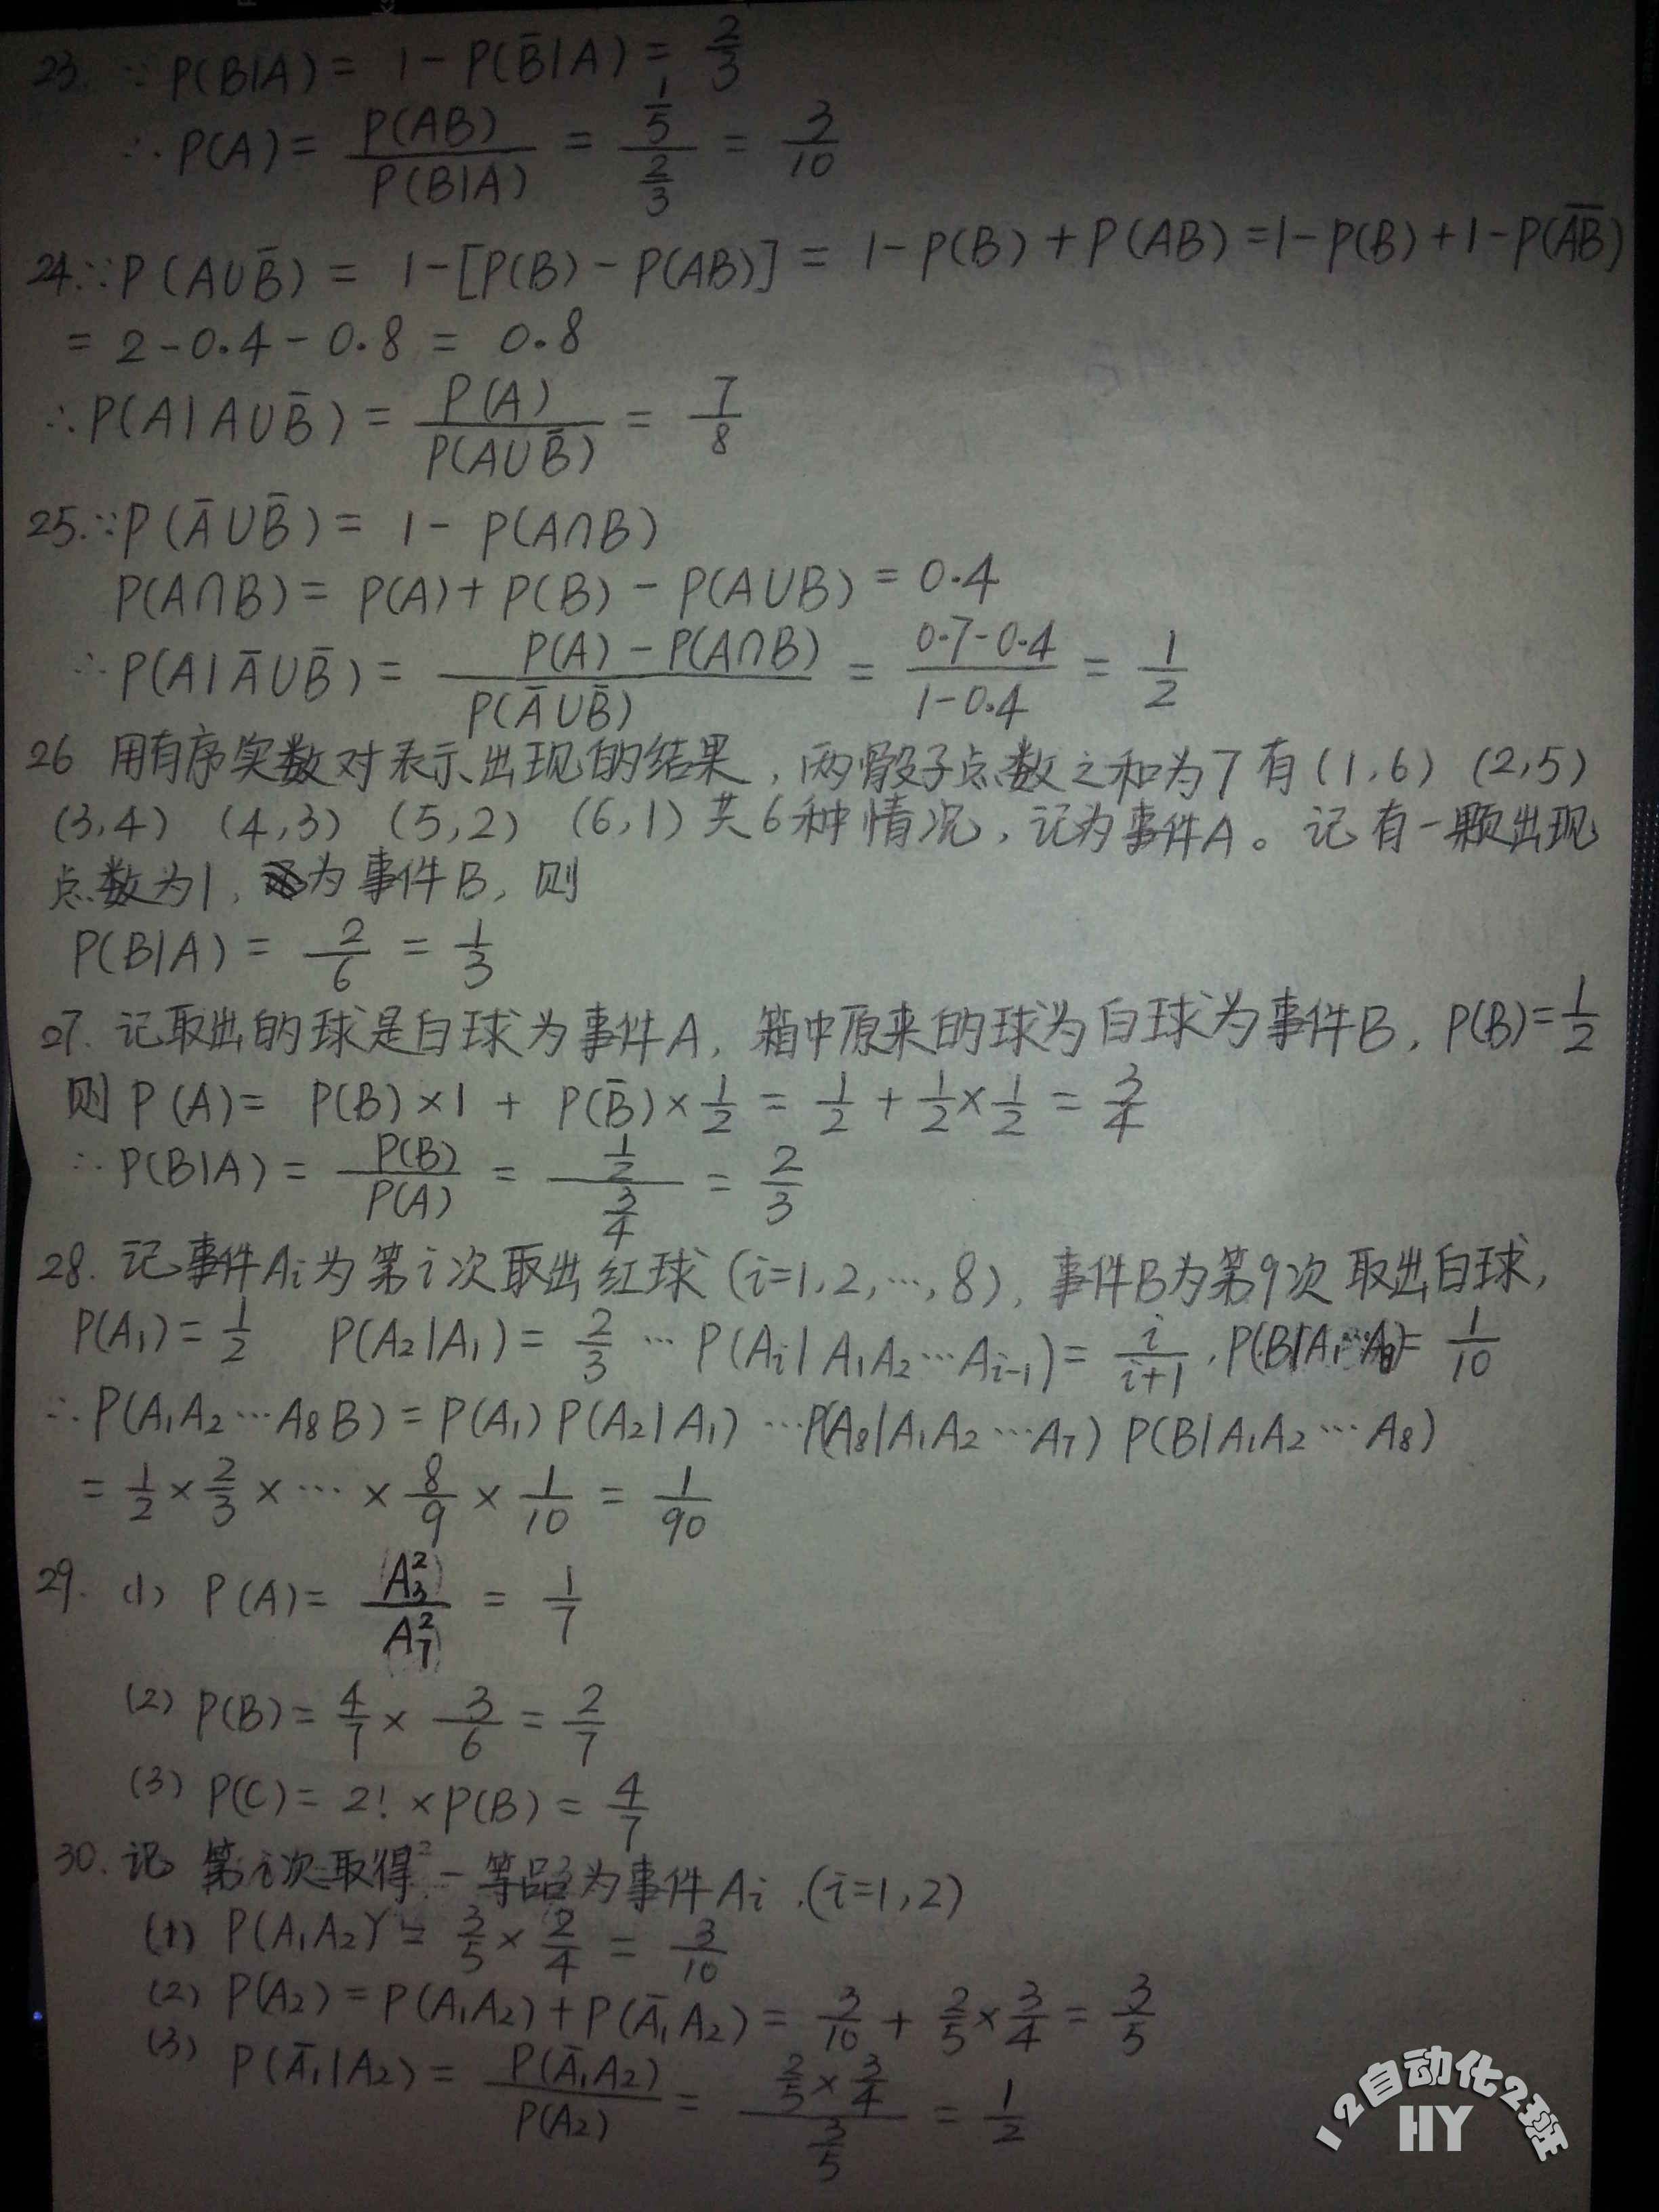 23. ∵P(B|A) = 1-P(B̄|A) = 2/3
∴P(A) = P(AB)/P(B|A) = (1/5)/(2/3) = 3/10
24.∵P(A∪B̄) = 1-[P(B)-P(AB)] = 1-P(B)+P(AB) =1-P(B)+1-P(A̅B̅)
= 2-0.4-0.8 = 0.8
∴P(A|A∪B̄) = P(A)/P(A∪B̄) = 7/8
25.∵P(Ā∪B̄) = 1-P(A∩B)
P(A∩B) = P(A)+P(B)-P(A∪B) = 0.4
∴P(A|Ā∪B̄) = (P(A)-P(A∩B))/P(Ā∪B̄) = (0.7-0.4)/(1-0.4) = 1/2
26 用有序实数对表示出现的结果，两骰子点数之和为7有(1,6) (2,5)
(3,4) (4,3) (5,2) (6,1)共6种情况，记为事件A。记有一颗出现
点数为1，为事件B，则
P(B|A) = 2/6 = 1/3
27. 记取出的球是白球为事件A，箱中原来的球为白球为事件B，P(B)=1/2
则P(A)= P(B)×1 + P(B̄)×1/2 = 1/2 + 1/2×1/2 = 3/4
∴P(B|A) = P(B)/P(A) = (1/2)/(3/4) = 2/3
28. 记事件Ai为第i次取出红球(i=1,2,…,8)，事件B为第9次取出白球，
P(A1)=1/2 P(A2|A1)=2/3 … P(Ai|A1A2…Ai-1)=i/(i+1)，P(B|A1…A8)=1/10
∴P(A1A2…A8B) = P(A1)P(A2|A1)…P(A8|A1A2…A7)P(B|A1A2…A8)
= 1/2×2/3×…×8/9×1/10 = 1/90
29. (1) P(A)= A₃²/A₇² = 1/7
(2) P(B)= 4/7×3/6 = 2/7
(3) P(C)= 2!×P(B) = 4/7
30. 记第i次取得一等品为事件Ai.(i=1,2)
(1) P(A1A2) = 3/5×2/4 = 3/10
(2) P(A2) = P(A1A2)+P(Ā1A2) = 3/10 + 2/5×3/4 = 3/5
(3) P(Ā1|A2) = P(Ā1A2)/P(A2) = (2/5×3/4)/(3/5) = 1/2
12自动化2班
HY